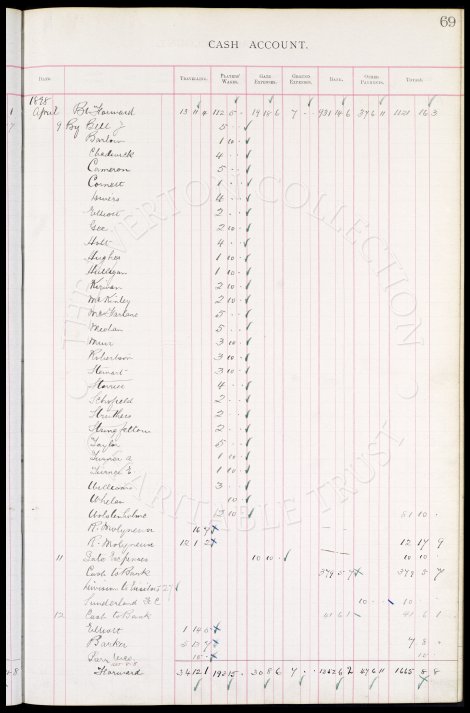 69
CASH ACCOUNT.
DATE TRAVELLING. PLAYERS' WAGES. GATE EXPENSES. GROUND EXPENSES. BANK. OTHER PAYMENTS. TOTALS.
1898
April Bt Forward 13 11 4 112 5 - 19 14 6 7 - - 931 14 6 37 6 11 1121 16 3
9 By Bell J 5 - -
Barlow 1 10 -
Chadwick 4 - -
Cameron 5 - -
Connell 1 - -
4 - -
Elliott 2 - -
Gee 2 10 -
Holt 4 - -
Hughes 1 10 -
Hulligan 1 10 -
Kirwan 2 10 -
McKinley 2 10 -
McFarlane 5 - -
Meehan 5 - -
Muir 3 10 -
Robertson 3 10 -
Stewart 3 10 -
4 - -
Schofield 2 - -
Struthers 2 - -
Stringfellow 2 - -
Taylor 5 - -
Turner A 1 10 -
Turner E 1 10 -
Williams 3 - -
Whelan 10 -
Wolstenholme 12 10 - 81 10 -
R. Molyneux 16 9
R. Molyneux 12 1 2 12 17 9
11 Gate Expenses 10 10 - 10 10 -
Cash to Bank 379 5 7 379 5 7
Division to Visitors 27
Sunderland FC 10 - - 10 - -
12 Cash to Bank 41 6 1 41 6 1
Elliott 1 14 5
Barker 5 13 7 7 8 -
10 - 10 -
Forward 34 12 1 193 15 - 30 8 6 7 - - 1352 6 2 47 6 11 1665 8 8
THE EVERTON COLLECTION CHARITABLE TRUST